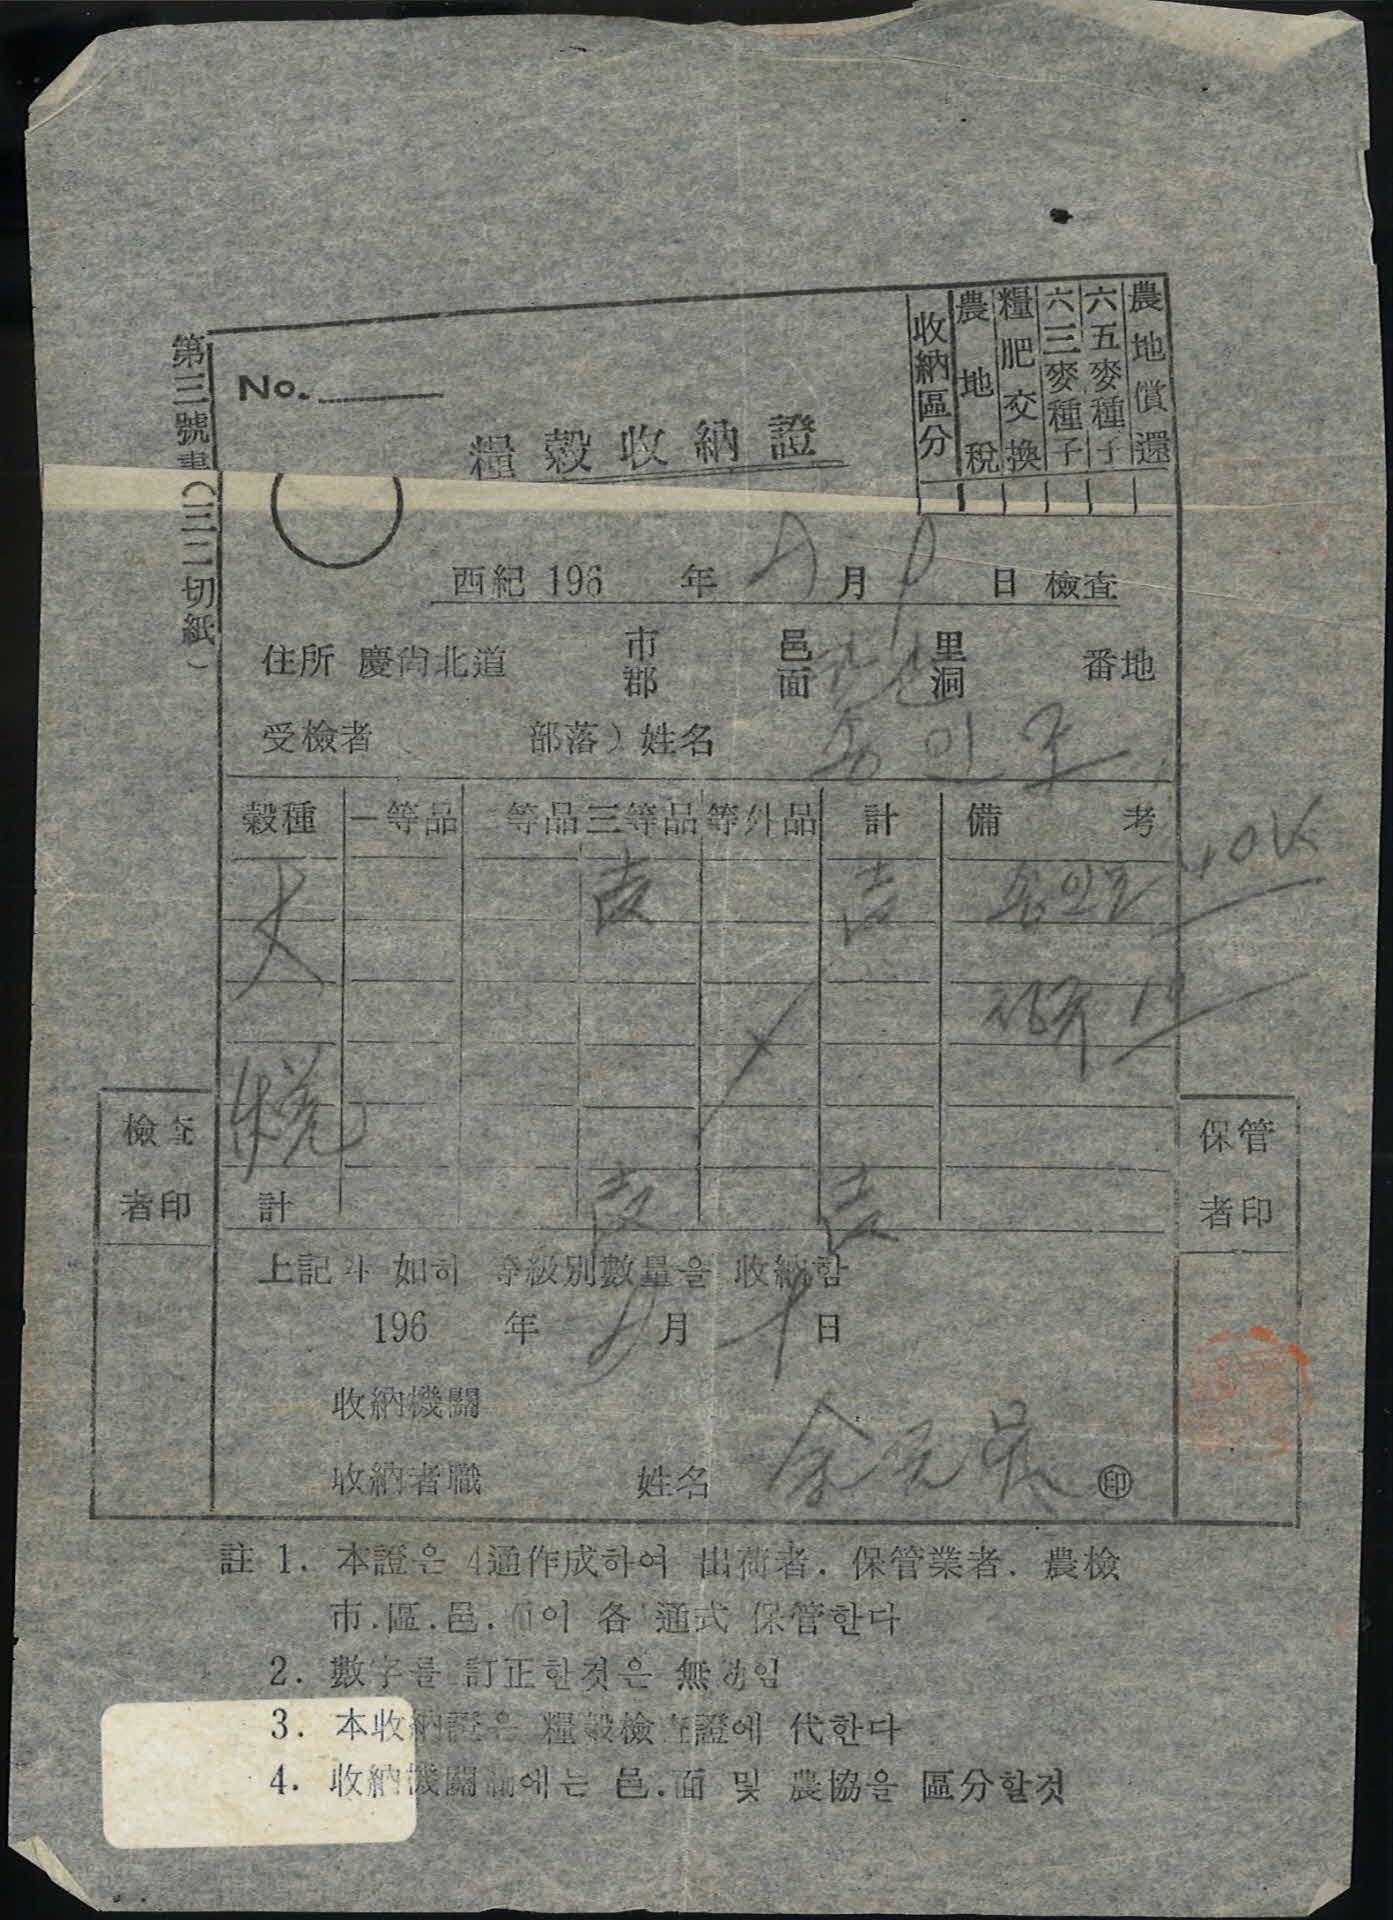 第三號書(三二切紙)
No.
糧穀收納證
收納區分
農地稅
糧肥交換
六三麥種子
六五麥種子
農地償還
西紀 196 年 月 日 檢査
住所 慶尙北道 市郡 邑面 里洞 番地
受檢者 ( 部落) 姓名 송인주
穀種 一等品 二等品 三等品 等外品 計 備考
計
檢査者印
保管者印
上記와 如히 等級別數量을 收納함
196 年 月 日
收納機關
收納者職 姓名 印
註 1. 本證은 4通作成하여 出荷者. 保管業者. 農檢
市.區.邑.面이 各 通式 保管한다
2. 數字를 訂正한것은 無效임
3. 本收納證은 糧穀檢査證에 代한다
4. 收納機關欄에는 邑.面 및 農協을 區分할것